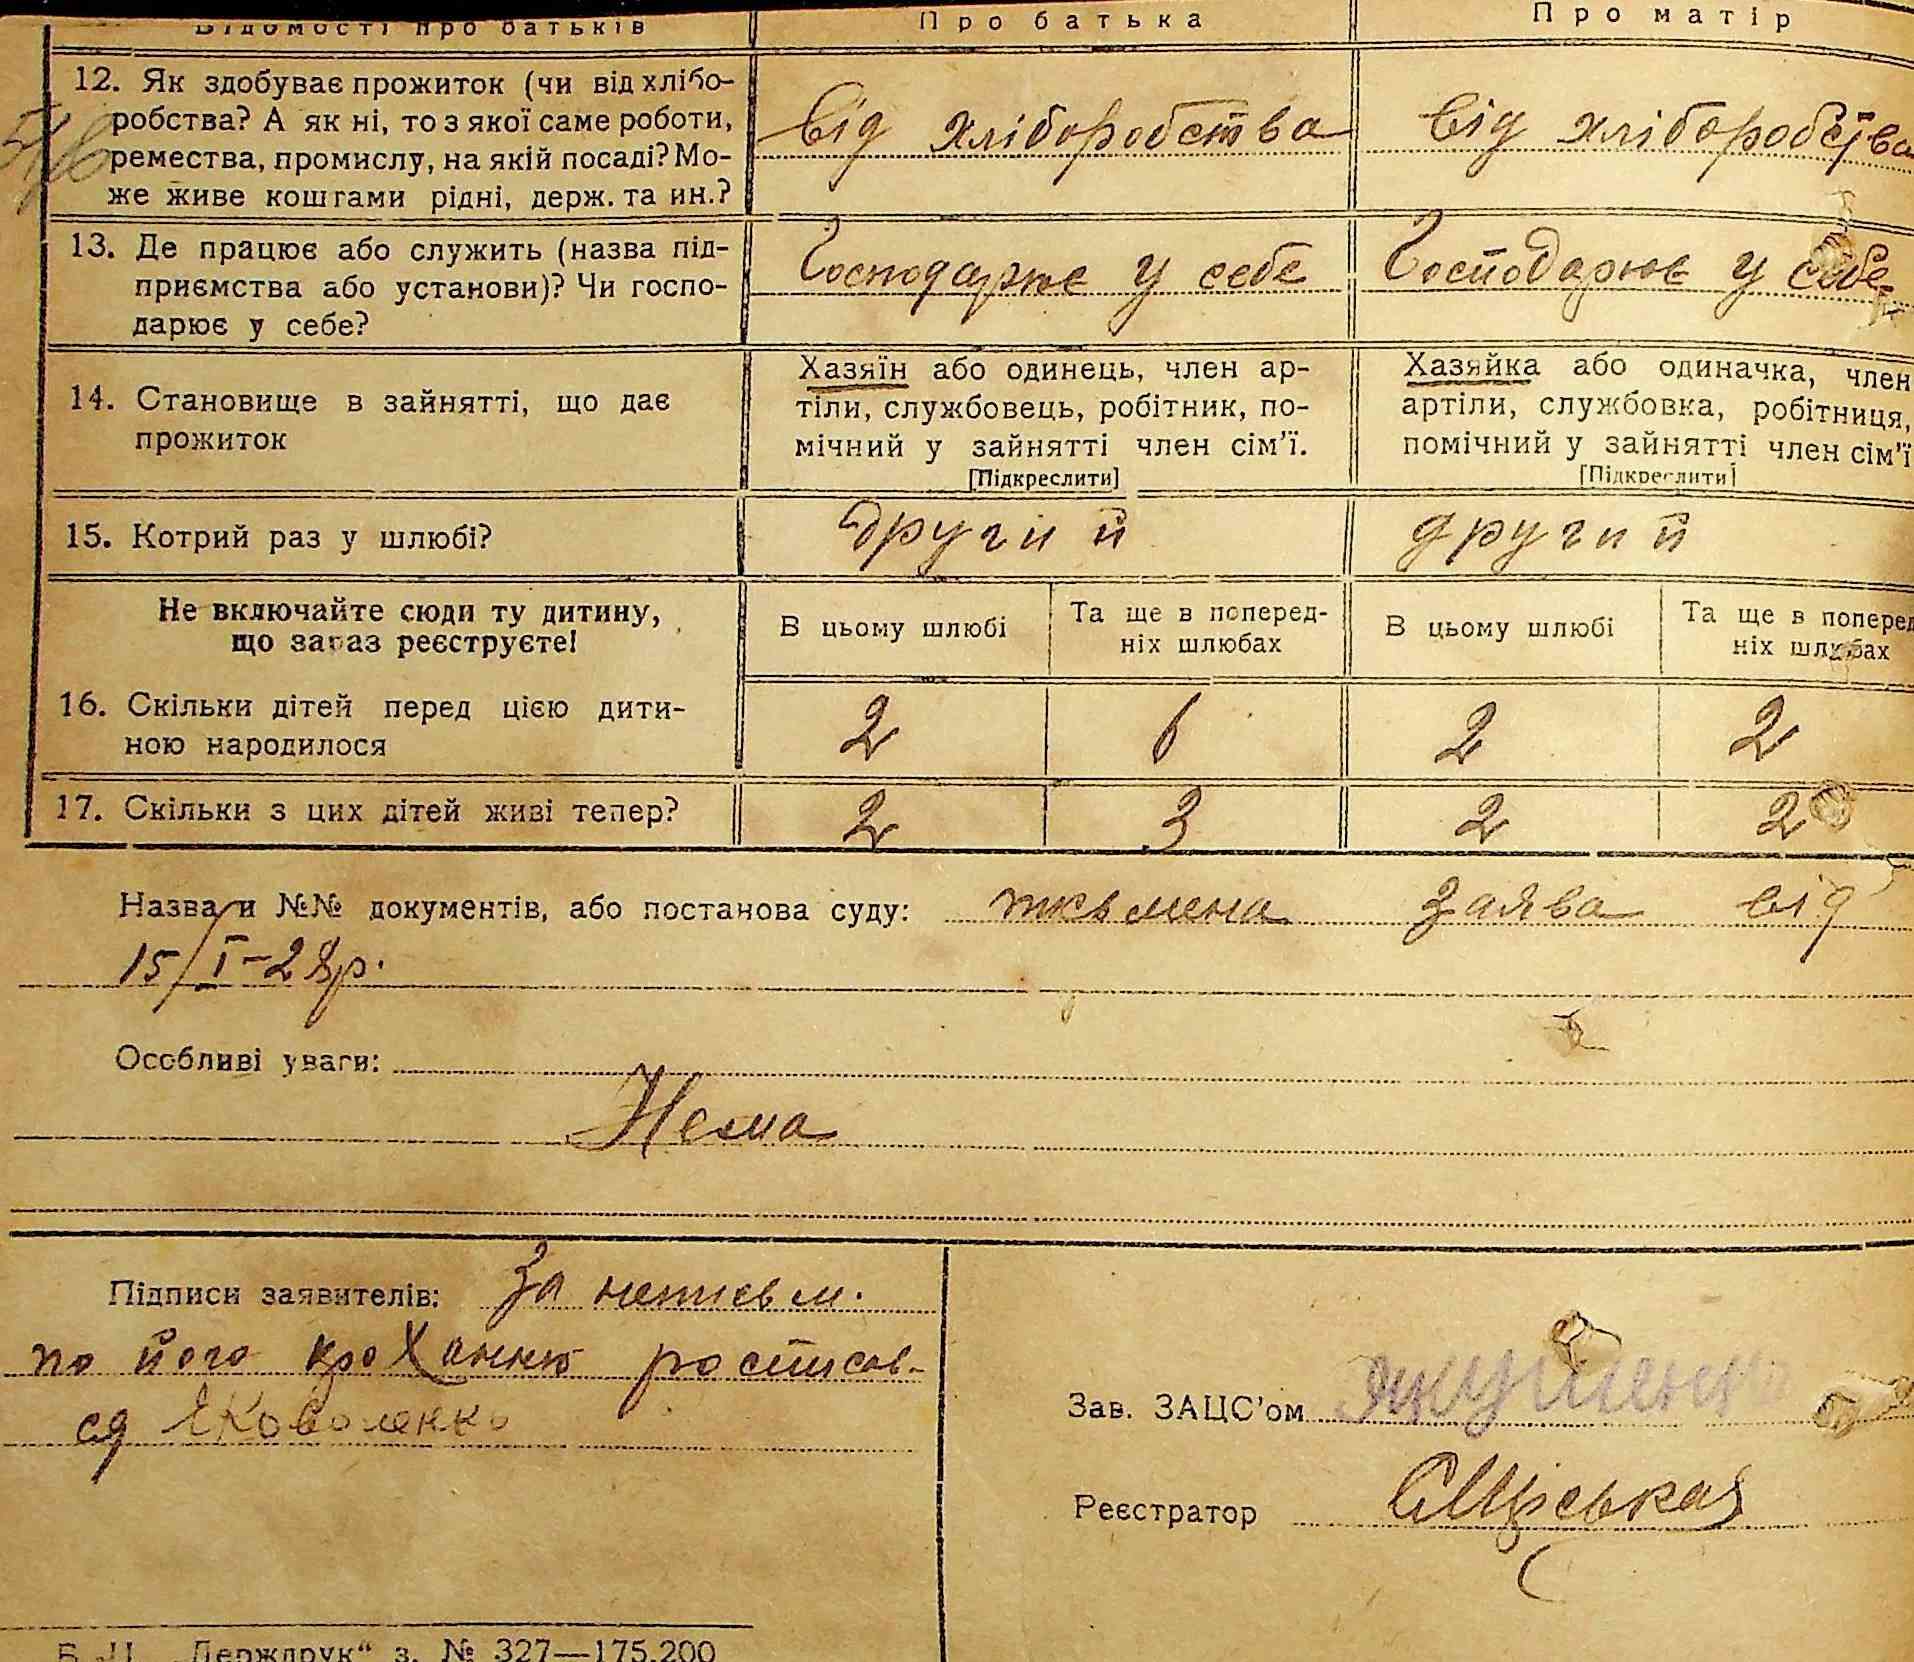 Відомості про батьків
Про батька
Про матір
12. Як здобуває прожиток (чи від хлібо-
робства? А як ні, то з якої саме роботи,
ремества, промислу, на якій посаді? Мо-
же живе коштами рідні, держ. та ин.?
від хліборобства
від хліборобства
13. Де працює або служить (назва під-
приємства або установи)? Чи госпо-
дарює у себе?
Господарює у себе
Господарює у себе
14. Становище в зайнятті, що дає
прожиток
Хазяїн або одинець, член ар-
тіли, службовець, робітник, по-
мічний у зайнятті член сім'ї.
[Підкреслити]
Хазяйка або одиначка, член
артіли, службовка, робітниця,
помічний у зайнятті член сім'ї
[Підкреслити]
15. Котрий раз у шлюбі?
другий
другий
Не включайте сюди ту дитину,
що зараз реєструєте!
В цьому шлюбі
Та ще в поперед-
ніх шлюбах
В цьому шлюбі
Та ще в поперед
ніх шлюбах
16. Скільки дітей перед цією дити-
ною народилося
2
6
2
2
17. Скільки з цих дітей живі тепер?
2
3
2
2
Назва и №№ документів, або постанова суду: письмена заява від
15/I-28р.
Особливі уваги:
Нема
Підписи заявителів: За неписьм.
по його проханню росписав-
ся
Зав. ЗАЦС'ом
Реєстратор
"Держдрук" з. № 327—175.200